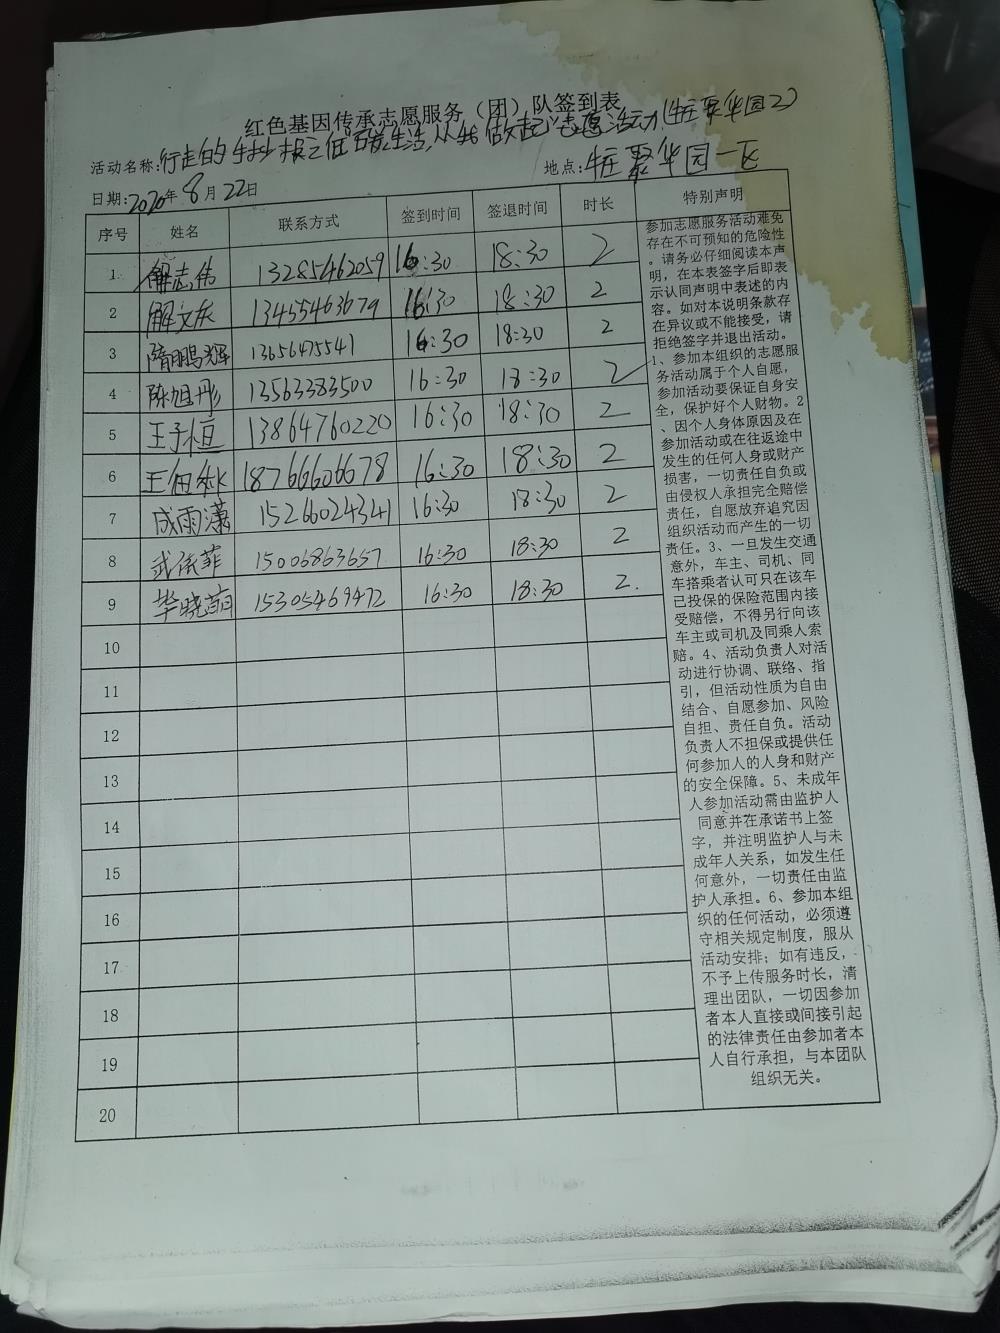 红色基因传承志愿服务（团）队签到表
活动名称:行走的 之低碳生活,从我做起"志愿活动(牛庄聚华园工)
地点:牛庄聚华园一区
日期:2020年8月22日
序号 姓名 联系方式 签到时间 签退时间 时长 特别声明
1 解志伟 13285462059 16:30 18:30 2
2 解文庆 13455463679 16:30 18:30 2
3 隋鹏辉 13656475541 16:30 18:30 2
4 陈旭彤 13563383500 16:30 18:30 2
5 王子恒 13864760220 16:30 18:30 2
6 王佃秋 18766606678 16:30 18:30 2
7 成雨潇 15266024341 16:30 18:30 2
8 武依菲 15006863657 16:30 18:30 2
9 毕晓萌 15305469472 16:30 18:30 2.
10
11
12
13
14
15
16
17
18
19
20
参加志愿服务活动难免
存在不可预知的危险性
。请务必仔细阅读本声
明，在本表签字后即表
示认同声明中表述的内
容。如对本说明条款存
在异议或不能接受，请
拒绝签字并退出活动。
1、参加本组织的志愿服
务活动属于个人自愿，
参加活动要保证自身安
全，保护好个人财物。2
、因个人身体原因及在
参加活动或在往返途中
发生的任何人身或财产
损害，一切责任自负或
由侵权人承担完全赔偿
责任，自愿放弃追究因
组织活动而产生的一切
责任。3、一旦发生交通
意外，车主、司机、同
车搭乘者认可只在该车
已投保的保险范围内接
受赔偿，不得另行向该
车主或司机及同乘人索
赔。4、活动负责人对活
动进行协调、联络、指
引，但活动性质为自由
结合、自愿参加、风险
自担、责任自负。活动
负责人不担保或提供任
何参加人的人身和财产
的安全保障。5、未成年
人参加活动需由监护人
同意并在承诺书上签
字，并注明监护人与未
成年人关系，如发生任
何意外，一切责任由监
护人承担。6、参加本组
织的任何活动，必须遵
守相关规定制度，服从
活动安排；如有违反，
不予上传服务时长，清
理出团队，一切因参加
者本人直接或间接引起
的法律责任由参加者本
人自行承担，与本团队
组织无关。